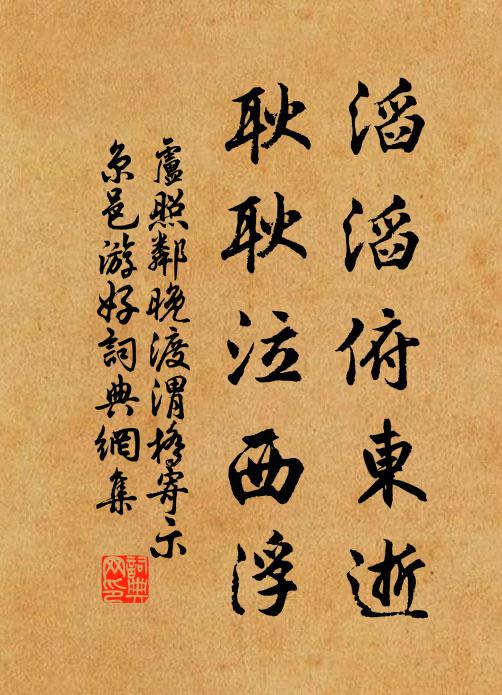 滔滔俯東逝
耿耿泣西浮
盧照鄰晚渡渭橋寄示
京邑游好詞典網集
詞典
网印